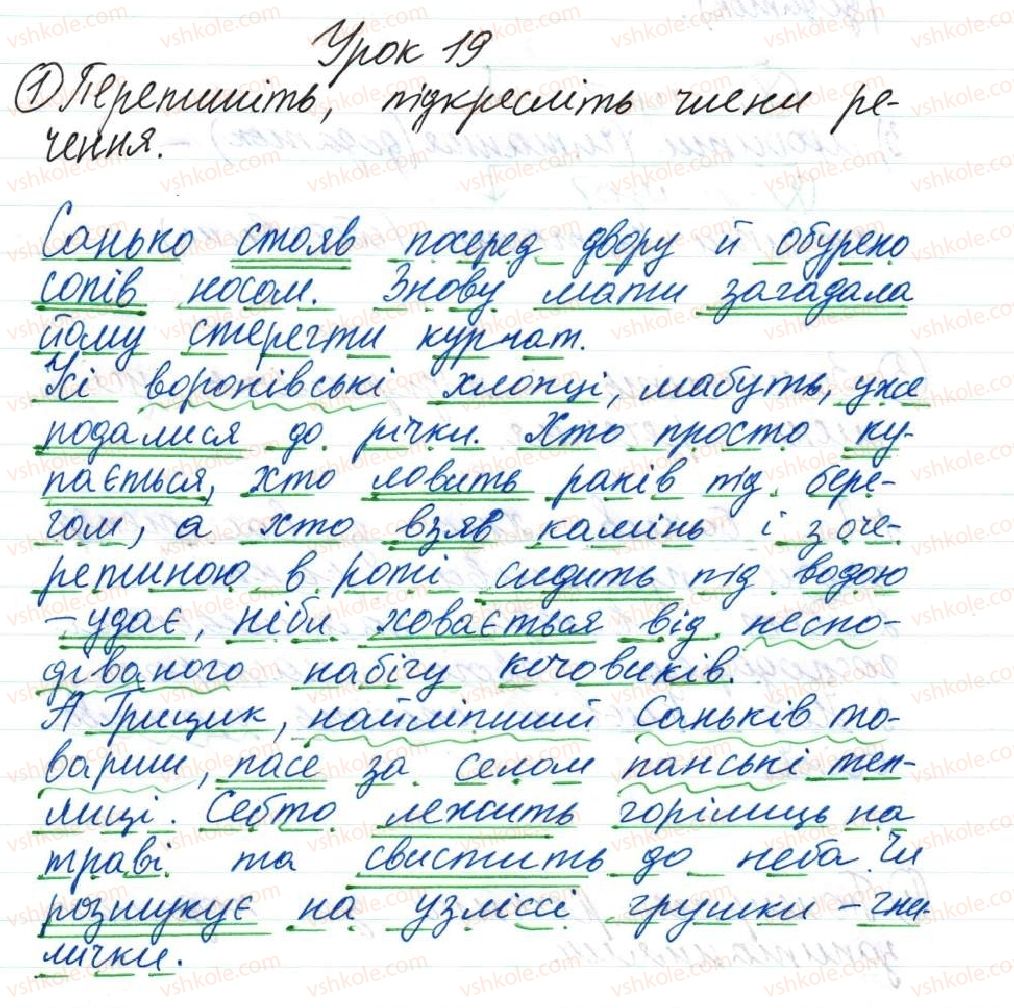 Урок 19
① Перепишіть, підкресліть члени ре-
чення.
Санько стояв посеред двору й обурено
сопів носом. Знову мати загадала
йому стерегти курчат.
Усі воронівські хлопці, мабуть, уже
подалися до річки. Хто просто ку-
пається, хто ловить раків під бере-
гом, а хто взяв камінь і з оче-
ретиною в роті сидить під водою
– удає, ніби ховається від неспо-
діваного набігу кочовиків.
А Грищик, найліпший Саньків то-
вариш, пасе за селом панські теп-
лиці. Себто лежить горілиць на
траві та свистить до неба. Чи
розшукує на узліссі грушки – гни-
лички.